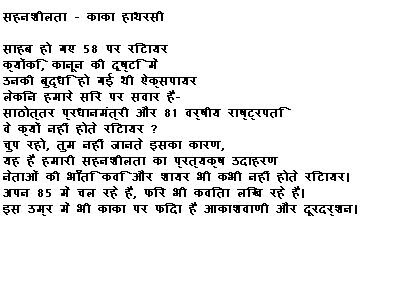 सहनशीलता - काका हाथरसी
साहब हो गए 58 पर रिटायर
क्योंकि, कानून की दृष्टि में
उनकी बुद्धि हो गई थी ऐक्सपायर
लेकिन हमारे सिर पर सवार हैं-
साठोत्तर प्रधानमंत्री और 81 वर्षीय राष्ट्रपति
वे क्यों नहीं होते रिटायर ?
चुप रहो, तुम नहीं जानते इसका कारण,
यह है हमारी सहनशीलता का प्रत्यक्ष उदाहरण
नेताओं की भाँति कवि और शायर भी कभी नहीं होते रिटायर।
अपन 85 में चल रहे हैं, फिर भी कविता लिख रहे हैं।
इस उम्र में भी काका पर फिदा हैं आकाशवाणी और दूरदर्शन।